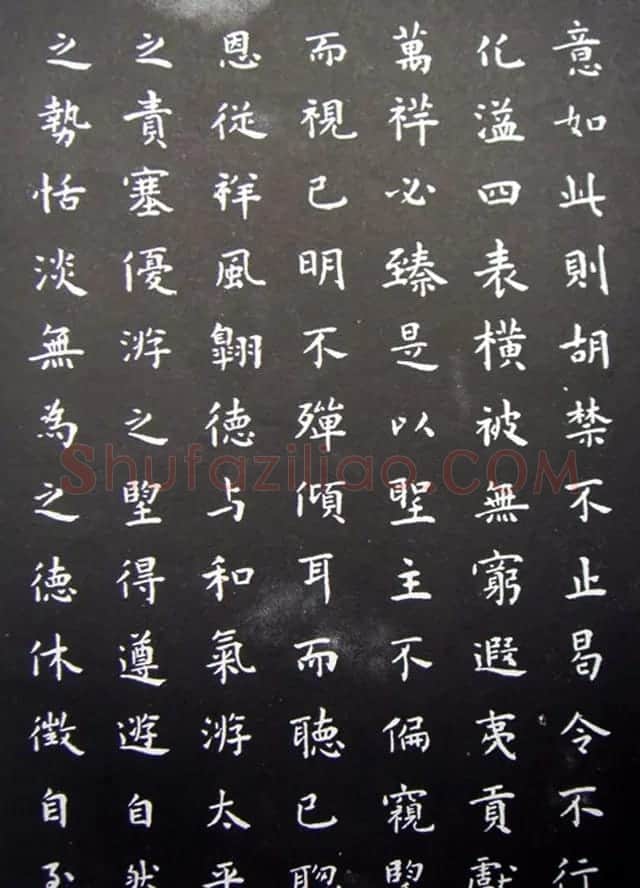 意如此則胡禁不止曷令不行
化溢四表橫被無窮遐夷貢獻
萬祥必臻是以聖主不偏窺望
而視已明不殫傾耳而聽已聰
恩從祥風翱德与和氣游太平
之責塞優游之望得遵遊自然
之勢恬淡無為之德休徵自至
Shufaziliao.COM